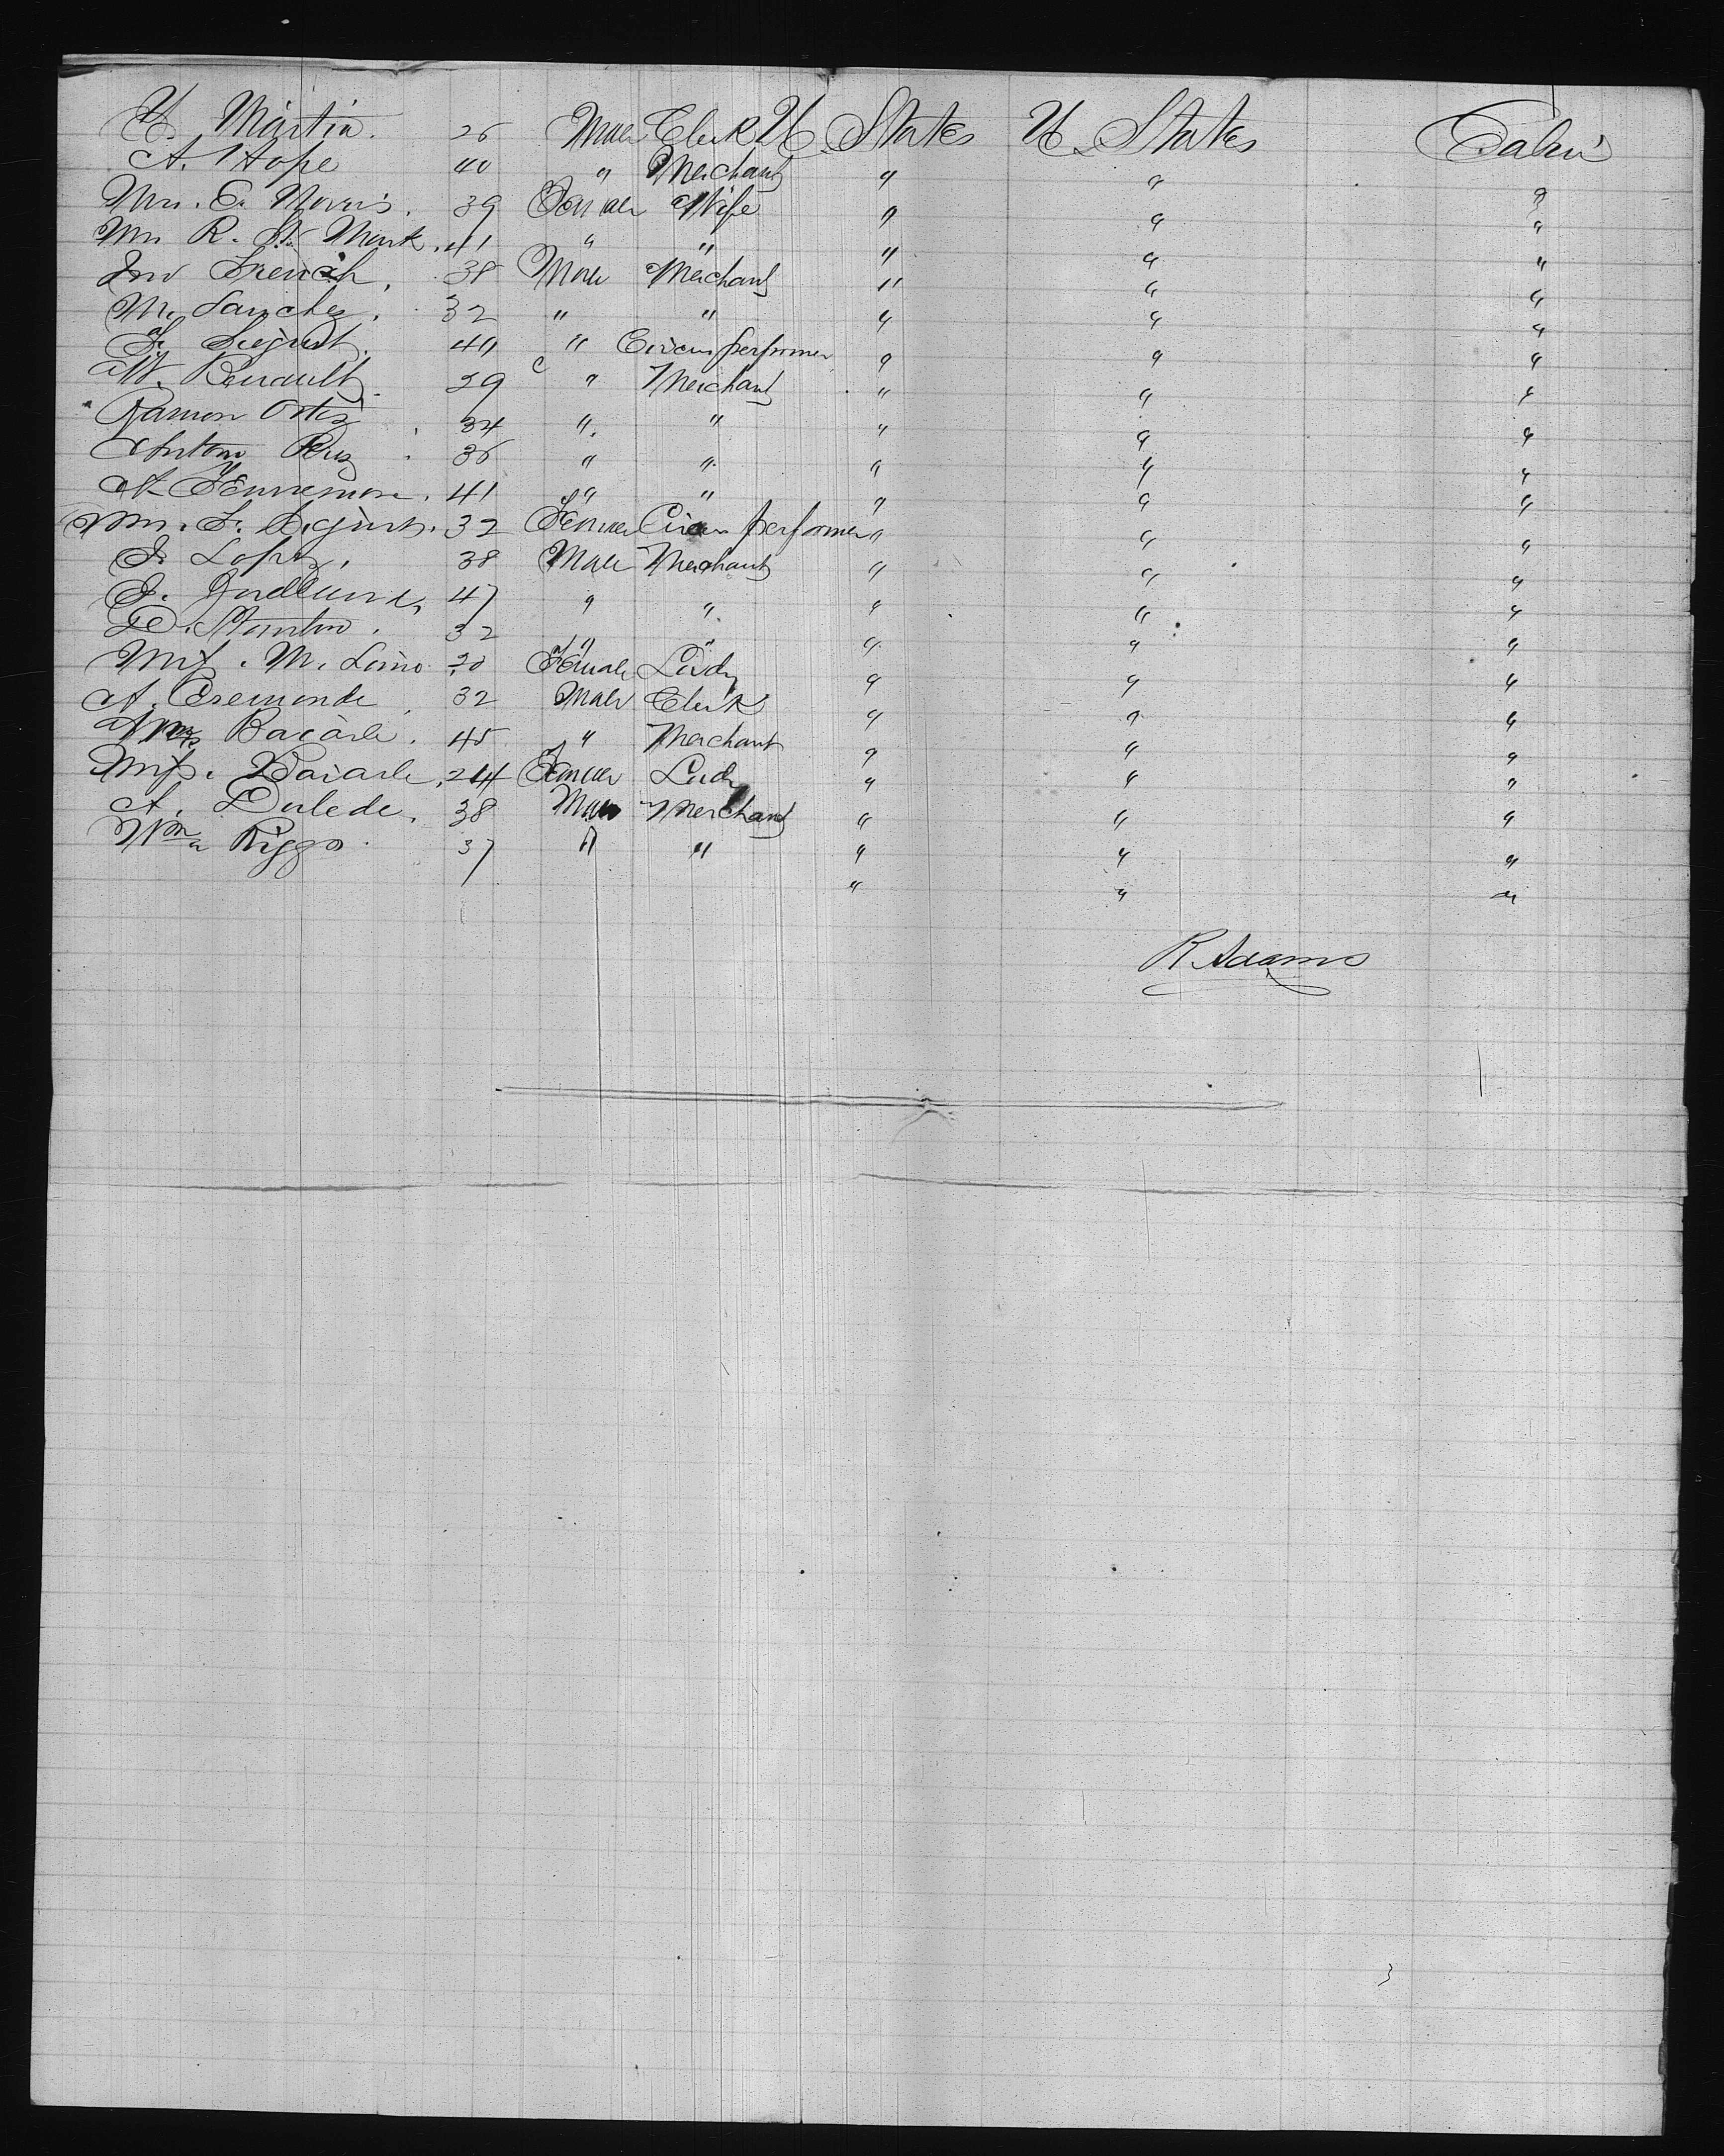 Y. Martin. 26 Male Clerk U States U States Cabin
A. Hope 40 " Merchant " " "
Mrs. E. Norris. 39 Female Wife " " "
Mrs R. St Mark. 41 " " " " "
Jno French. 38 Male Merchant " " "
M. Sanchez. 32 " " " " "
F. 40 " Circus performer " " "
W. Renault. 29 " Merchant " " "
Ramon Ortiz 34 " " " " "
Antonio Ruz 36 " " " " "
A 41 " " " " "
Mrs. F. 32 Female Circus performer " " "
J. Lopez. 38 Male Merchant " " "
J. 47 " " " " "
D. Stanton. 32 " " " " "
Miss. M. 20 Female Lady " " "
A. Eremonde. 32 Male Clerk " " "
Bacarle. 45 " Merchant " " "
Miss. Bacarle. 24 Female Lady " " "
A. Dulede. 38 Male Merchant " " "
Wm Riggs. 37 " " " " "
" " "
R. Adams